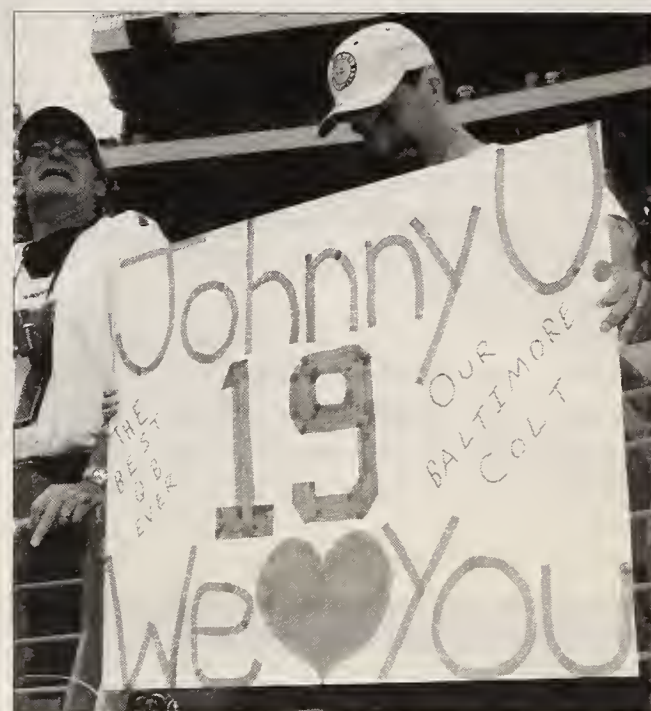 Johnny U
19
THE
BEST
QB
EVER
OUR
BALTIMORE
COLT
We ♥ YOU